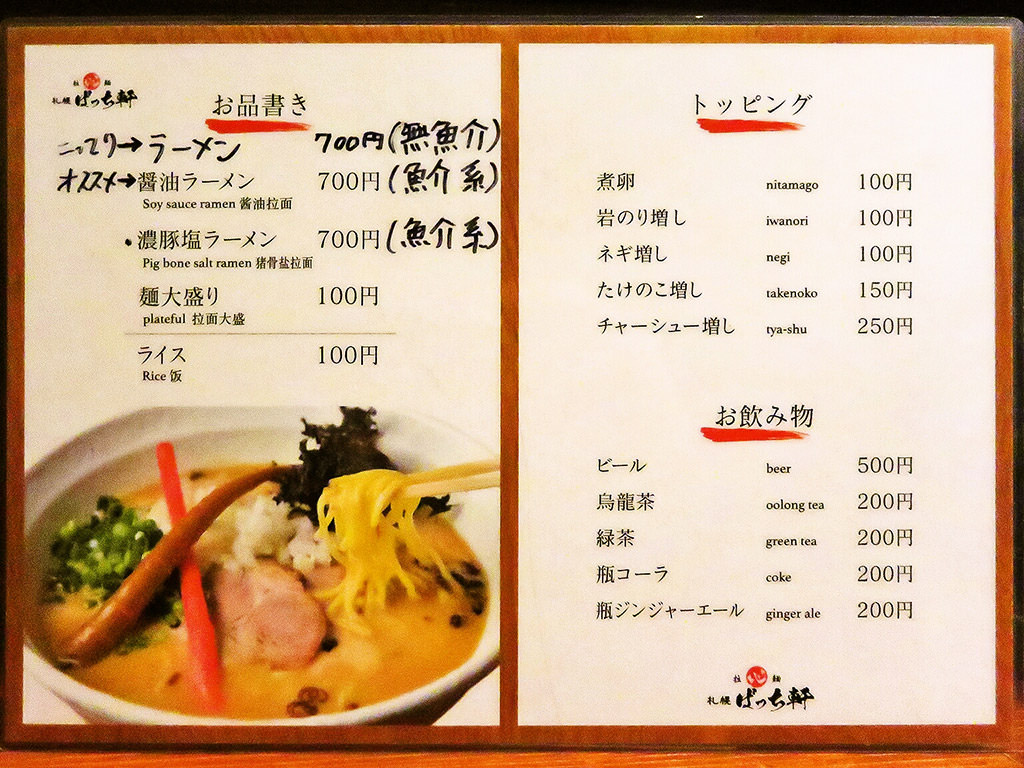 拉 麺
札幌 ばっち軒
お品書き
こってり→ラーメン 700円(無魚介)
オススメ→醤油ラーメン 700円(魚介系)
Soy sauce ramen 酱油拉面
・濃豚塩ラーメン 700円(魚介系)
Pig bone salt ramen 猪骨盐拉面
麺大盛り 100円
plateful 拉面大盛
ライス 100円
Rice 饭
トッピング
煮卵 nitamago 100円
岩のり増し iwanori 100円
ネギ増し negi 100円
たけのこ増し takenoko 150円
チャーシュー増し tya-shu 250円
お飲み物
ビール beer 500円
烏龍茶 oolong tea 200円
緑茶 green tea 200円
瓶コーラ coke 200円
瓶ジンジャーエール ginger ale 200円
拉 麺
札幌 ばっち軒